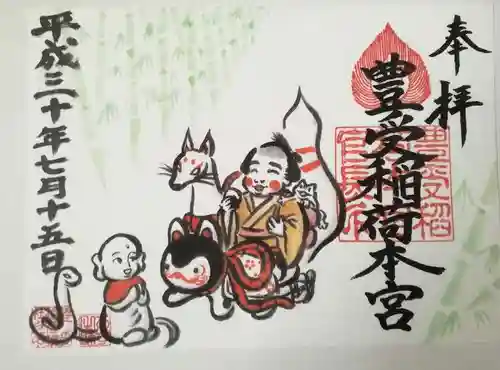 奉拝
豊受稲荷本宮
平成三十年七月十五日